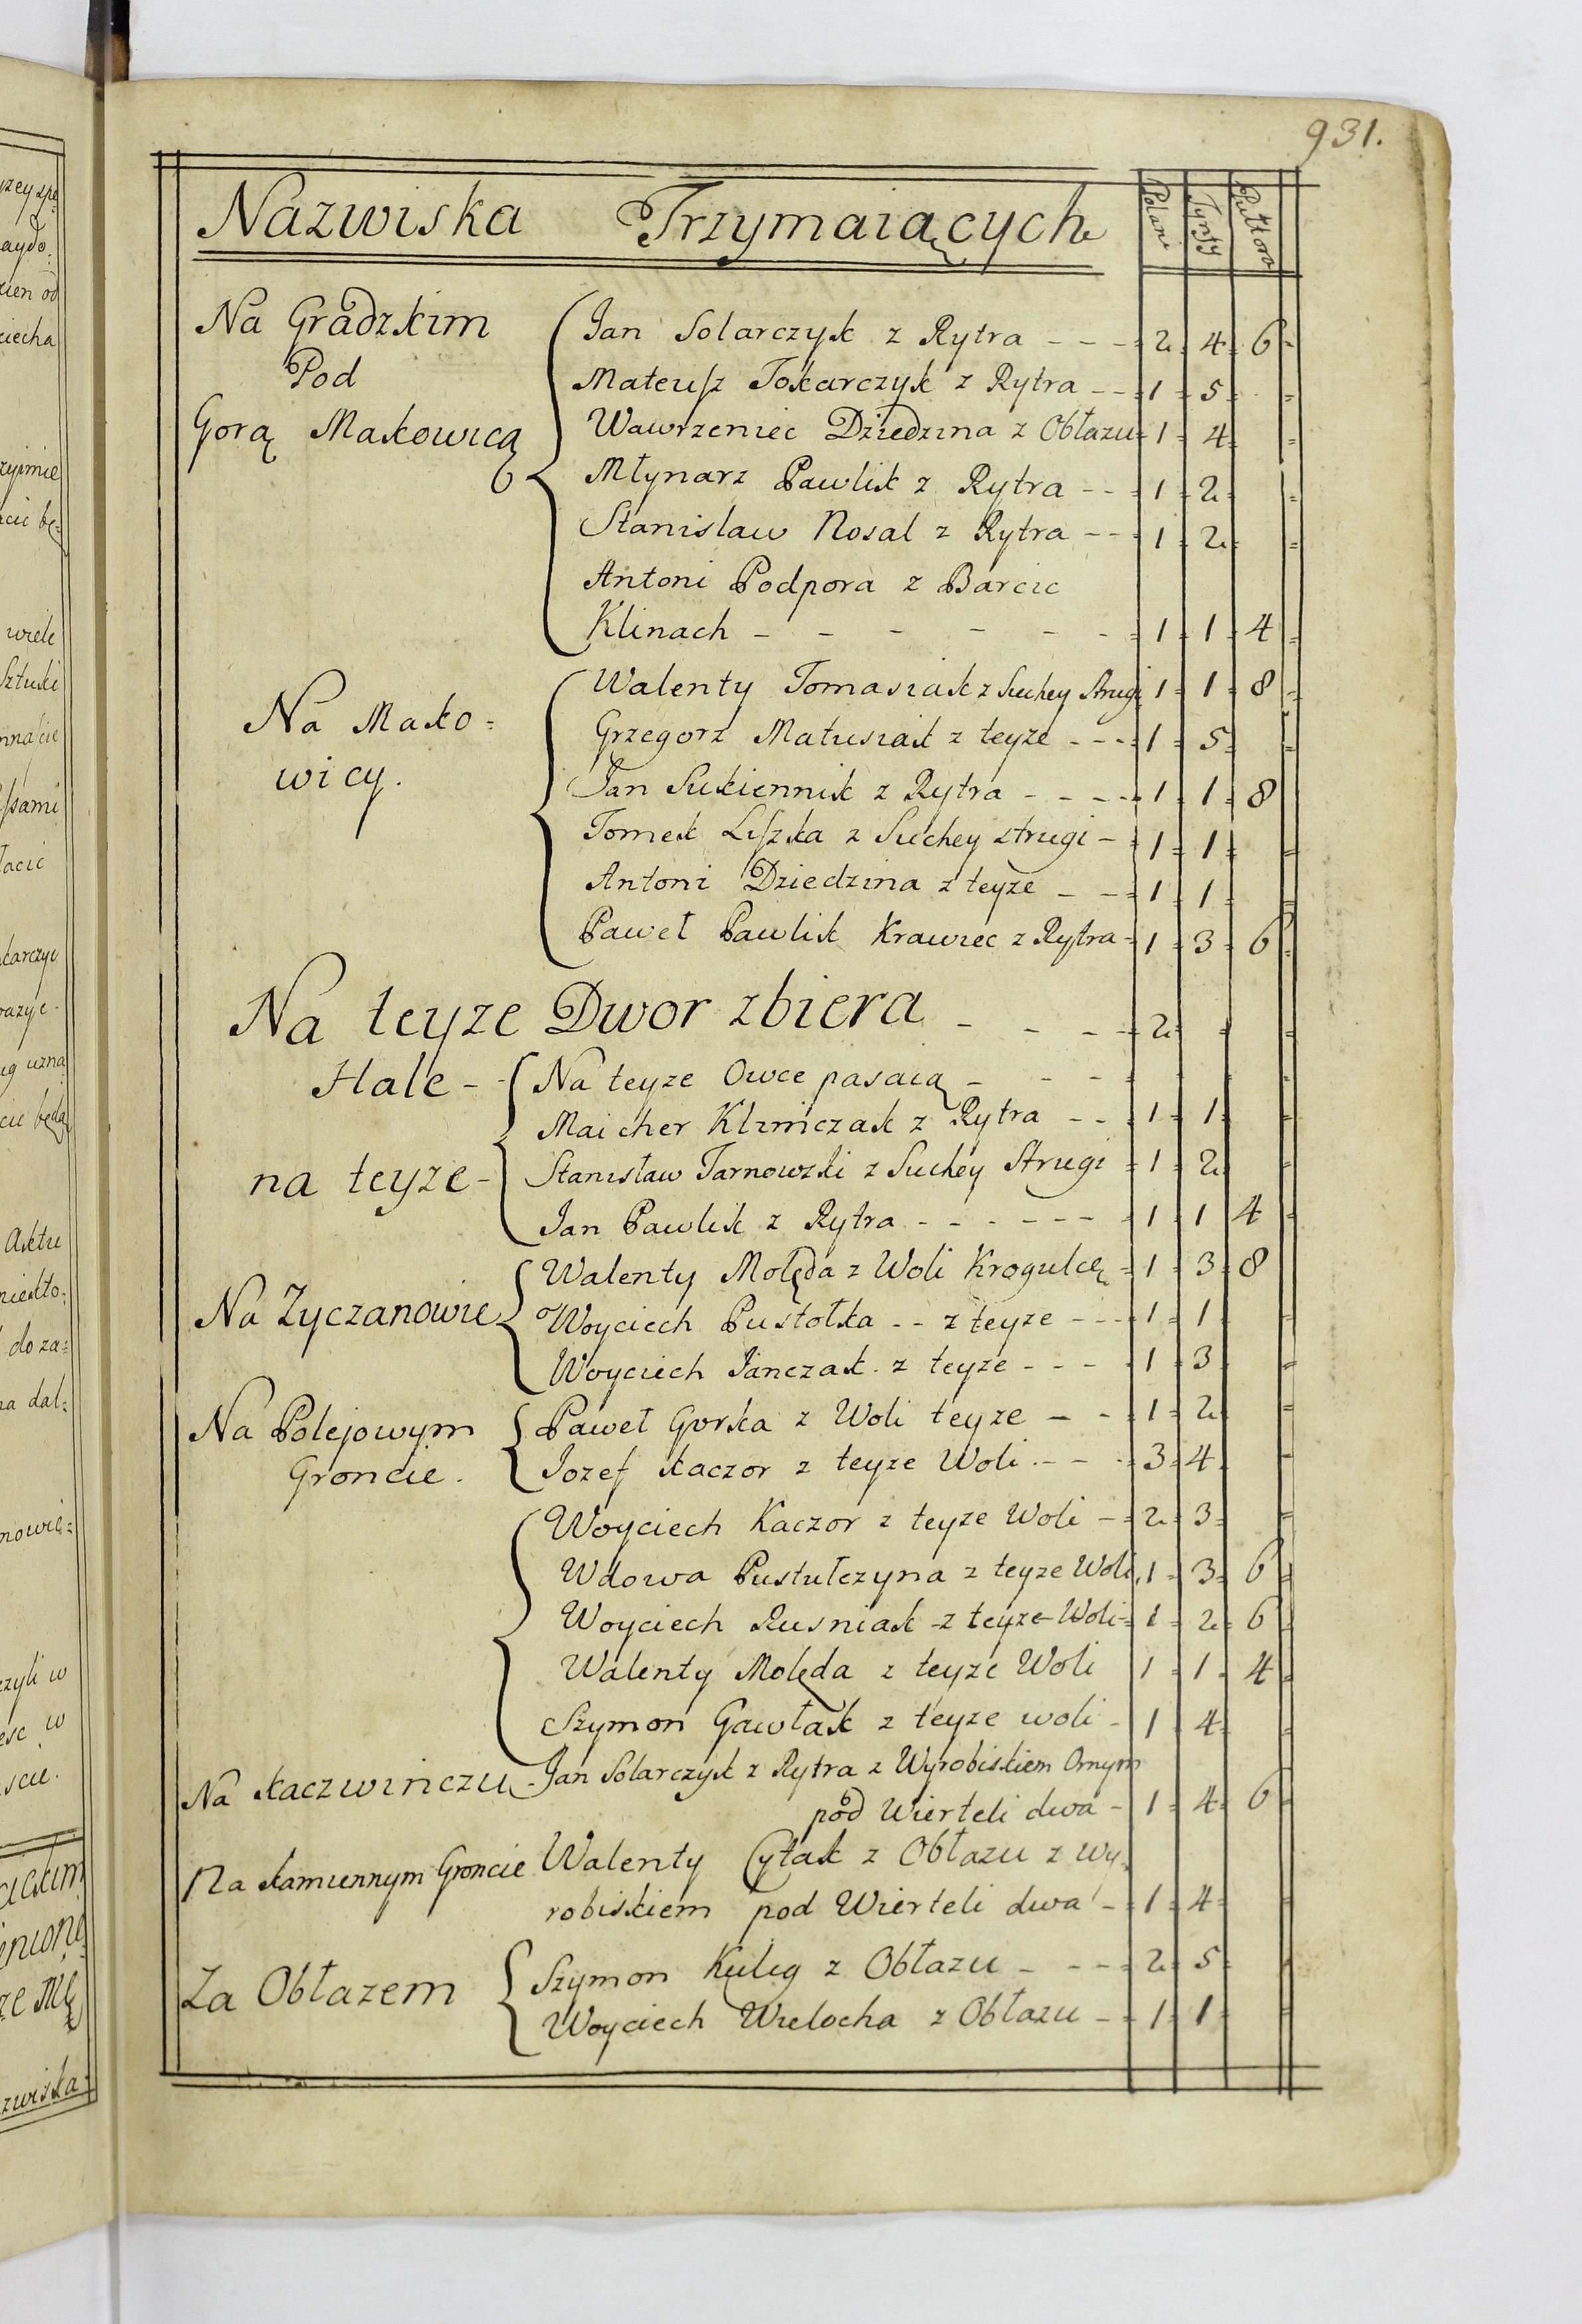 931.
Nazwiska Trzymaiących Polan Tynfy Pułtora
Na Gradzkim Jan Solarczyk z Rytra - - - 2 4 6
Pod Mateusz Tokarczyk z Rytra - - 1 5
Gorą Makowicą Wawrzeniec Dziedzina z Obłazu 1 4
Młynarz Pawlik z Rytra - - 1 2
Stanislaw Nosal z Rytra - - 1 2
Antoni Podpora z Barcic
Klinach - - - - - - 1 1 4
Na Mako= Walenty Tomasiak z Suchey Strugi 1 1 8
wicy. Grzegorz Matusiak z teyze - - - 1 5
Jan Sukiennik z Rytra - - - 1 1 8
Tomek Liszka z Suchey strugi - 1 1
Antoni Dziedzina z teyze - - 1 1
Paweł Pawlik Krawiec z Rytra 1 3 6
Na teyze Dwor zbiera - - - - 2
Hale - Na teyze Owce pasaią - - -
Maicher Klimczak z Rytra - - 1 1
na teyze - Stanisław Tarnowski z Suchey Strugi 1 2
Jan Pawlik z Rytra - - - - - - 1 1 4
Na Zyczanowie Walenty Molęda z Woli Krogulcę 1 3 8
Woyciech Pustołka - - z teyze - - - 1 1
Woyciech Janczak z teyze - - - 1 3
Na Polejowym Paweł Gorka z Woli teyze - - 1 2
Groncie. Jozef Kaczor z teyze Woli - - - 3 4
Woyciech Kaczor z teyze Woli - 2 3
Wdowa Pustułczyna z teyze Woli, 1 3 6
Woyciech Rusniak z teyze Woli 1 2 6
Walenty Molęda z teyze Woli 1 1 4
Szymon Gawłak z teyze woli - 1 4
Na Kaczwinczu Jan Solarczyk z Rytra z Wyrobiskiem Ornym
pod Wierteli dwa - 1 4 6
Na Kamiennym Groncie Walenty Cyłak z Obłazu z wy=
robiskiem pod Wierteli dwa - 1 4
Za Obłazem Szymon Kulig z Obłazu - - - 2 5
Woyciech Wielocha z Obłazu - 1 1